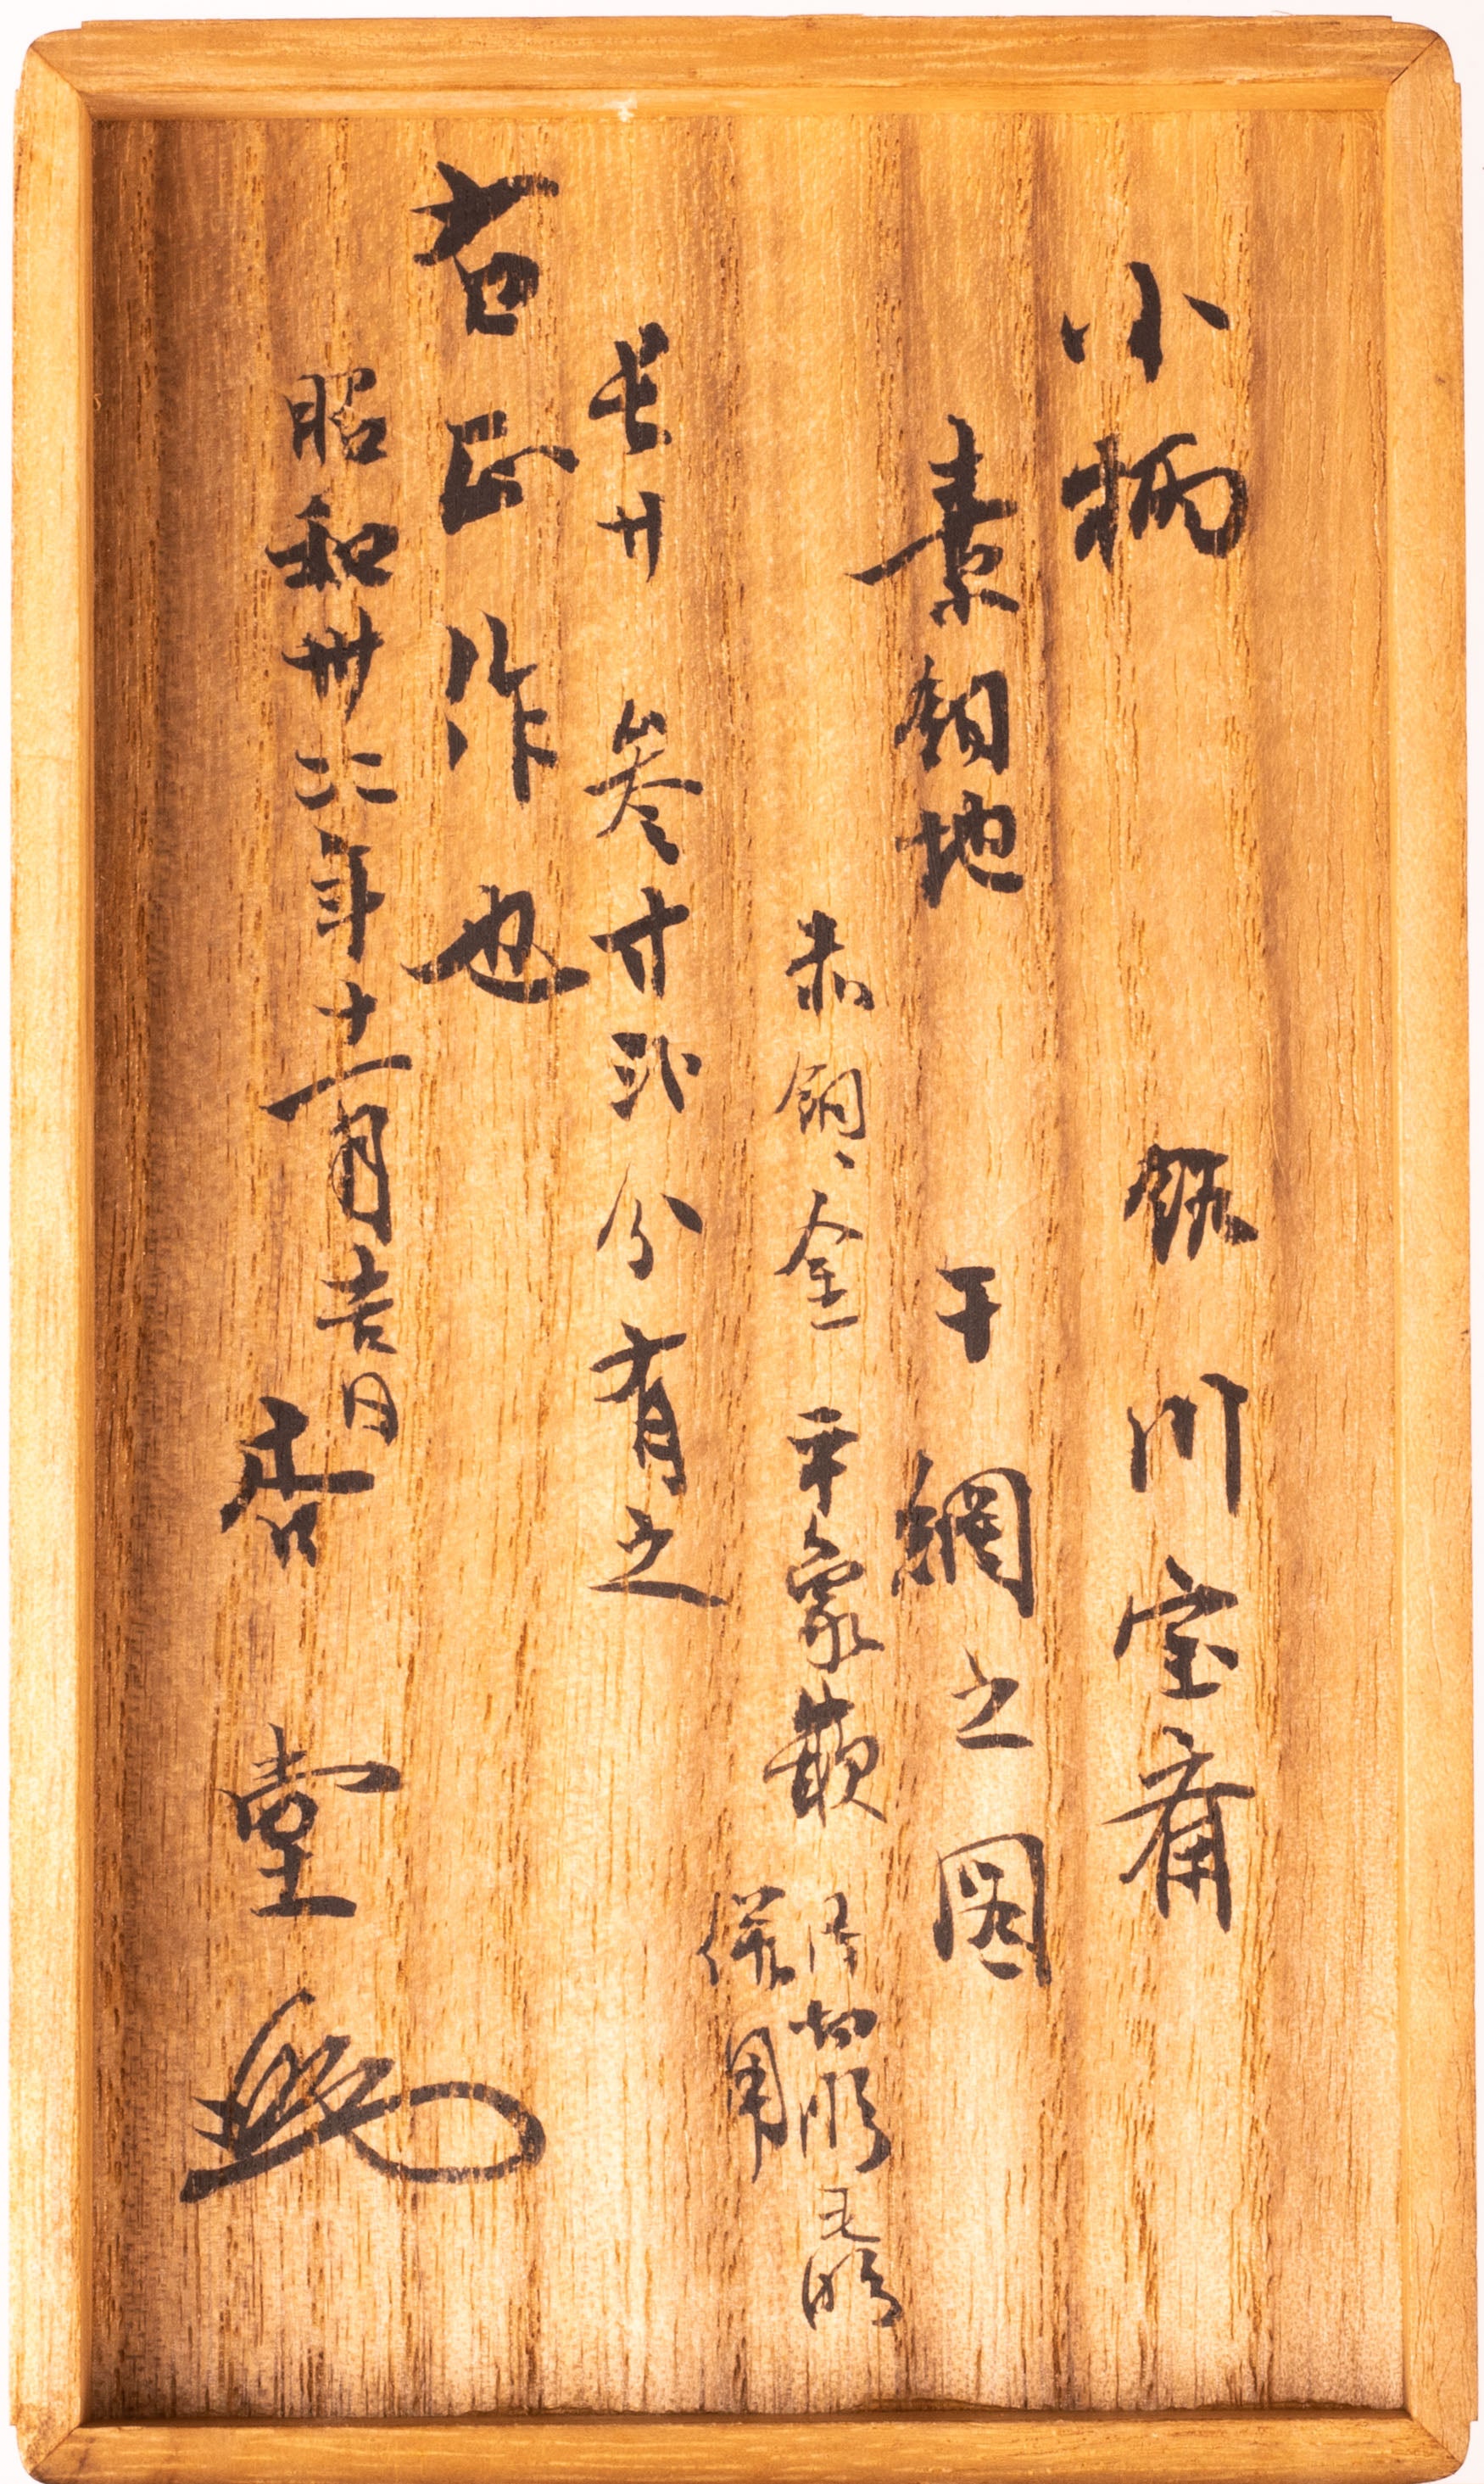 小柄 銘 川宝斎
素銅地 干網之図
赤銅、金 平象嵌 片切彫 毛彫
併用
長サ 参寸弐分有之
右正作也
昭和卅年十一月吉日
香堂